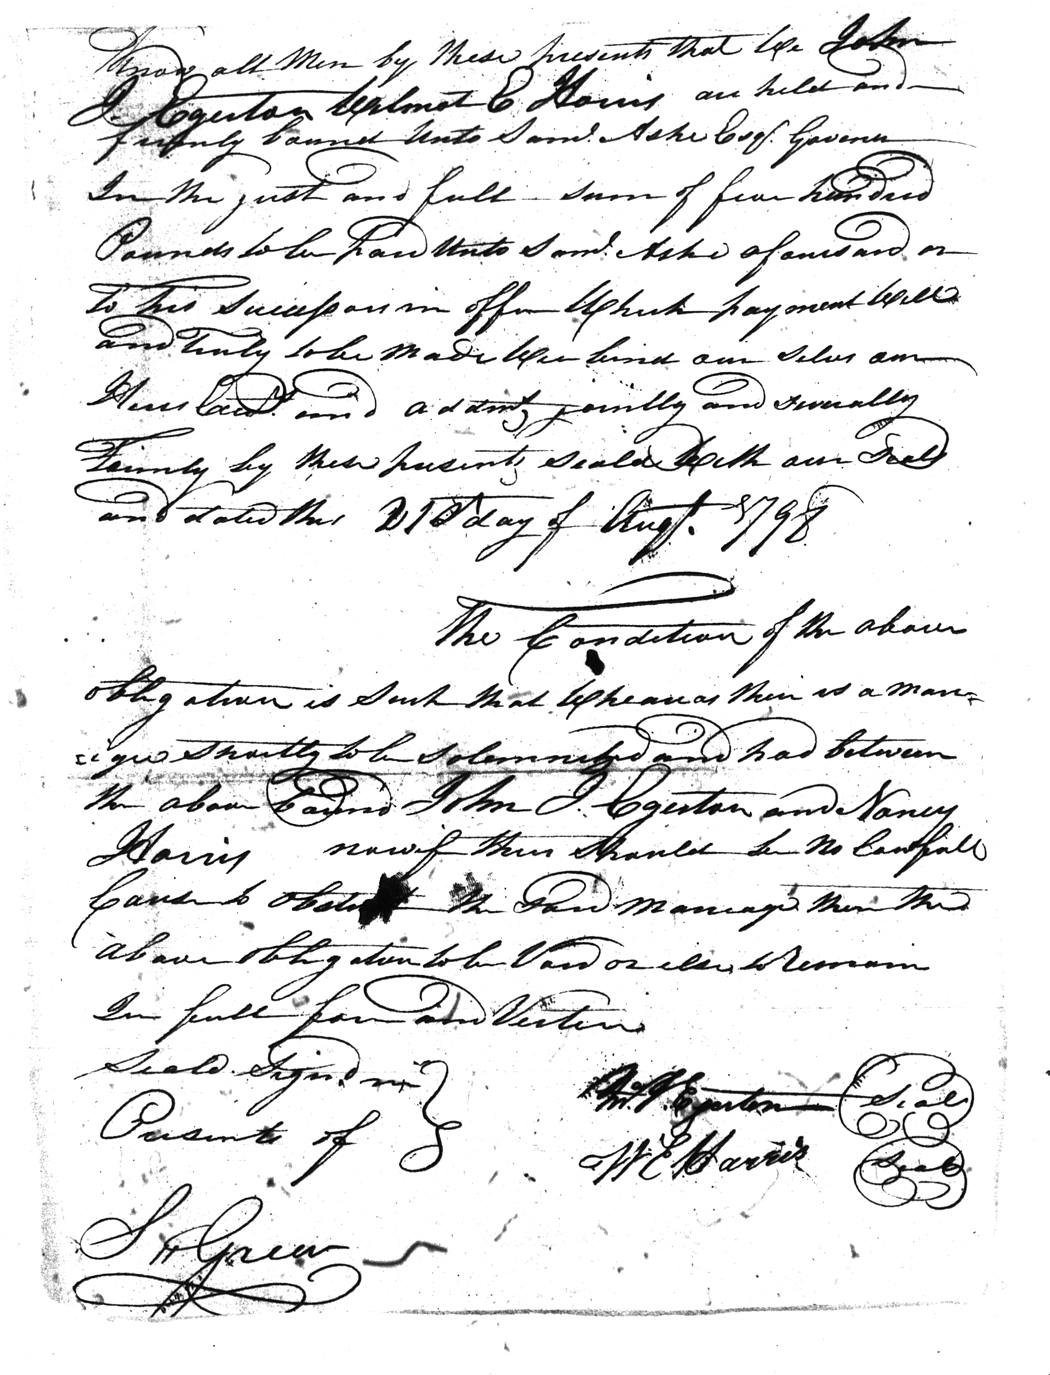 Know all Men by these presents that We John
J. Egerton Wilmot E Harris are held and
firmly bound Unto Saml. Ashe Esqr. Govenor
In the just and full sum of five hundred
Pounds to be paid Unto Saml. Ashe aforesaid or
to his Successors in office Which payment Well
and Truly to be Made We bind our selves our
Heirs Exect. and admrs jointly and severally
Firmly by these presents seald With our Seals
and dated this 21st day of Augt. 1798
The Condition of the above
obligation is Such that Wheareas their is a Marr=
=iage Shortly to be solemnized and had between
the above bound John J. Egerton and Nancy
Harris now if there should be No Lawfull
Cause to obstruct the Said Marriage then the
above obligation to be Void or else to Remain
In full force and Vertue
Seald Signd in
Presents of
Jno. J. Egerton Seal
W E Harris Seal
S H Green